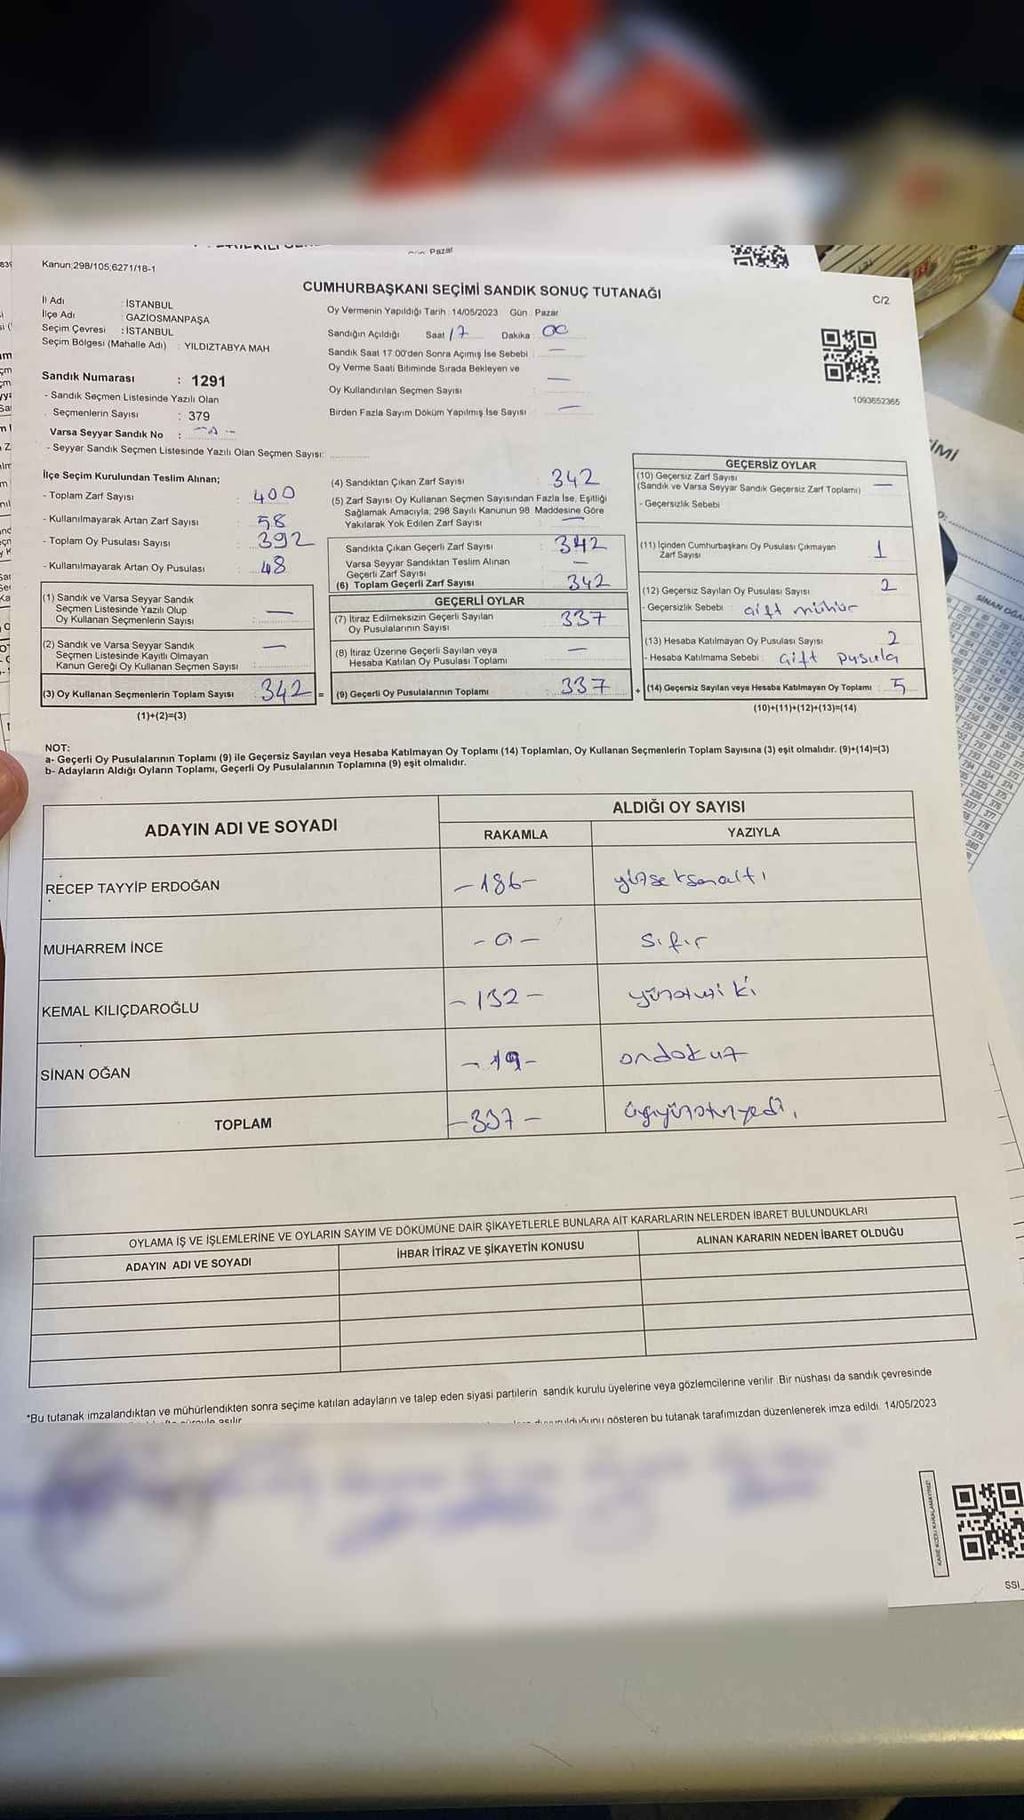 Pazar
Kanun;298/105,6271/18-1
CUMHURBAŞKANI SEÇİMİ SANDIK SONUÇ TUTANAĞI
C/2
İl Adı : İSTANBUL
İlçe Adı : GAZİOSMANPAŞA
Seçim Çevresi : İSTANBUL
Seçim Bölgesi (Mahalle Adı) : YILDIZTABYA MAH
Oy Vermenin Yapıldığı Tarih : 14/05/2023 Gün : Pazar
Sandığın Açıldığı Saat 17 Dakika : 00
Sandık Saat 17.00'den Sonra Açımış İse Sebebi : —
Oy Verme Saati Bitiminde Sırada Bekleyen ve
Oy Kullandırılan Seçmen Sayısı : —
Birden Fazla Sayım Döküm Yapılmış İse Sayısı : —
1093652365
Sandık Numarası : 1291
- Sandık Seçmen Listesinde Yazılı Olan
Seçmenlerin Sayısı : 379
Varsa Seyyar Sandık No :
- Seyyar Sandık Seçmen Listesinde Yazılı Olan Seçmen Sayısı:
İlçe Seçim Kurulundan Teslim Alınan;
- Toplam Zarf Sayısı : 400
- Kullanılmayarak Artan Zarf Sayısı : 58
- Toplam Oy Pusulası Sayısı : 392
- Kullanılmayarak Artan Oy Pusulası : 48
(1) Sandık ve Varsa Seyyar Sandık
Seçmen Listesinde Yazılı Olup
Oy Kullanan Seçmenlerin Sayısı : —
(2) Sandık ve Varsa Seyyar Sandık
Seçmen Listesinde Kayıtlı Olmayan
Kanun Gereği Oy Kullanan Seçmen Sayısı : —
(3) Oy Kullanan Seçmenlerin Toplam Sayısı : 342 =
(1)+(2)=(3)
(4) Sandıktan Çıkan Zarf Sayısı : 342
(5) Zarf Sayısı Oy Kullanan Seçmen Sayısından Fazla İse, Eşitliği
Sağlamak Amacıyla; 298 Sayılı Kanunun 98. Maddesine Göre
Yakılarak Yok Edilen Zarf Sayısı : —
Sandıkta Çıkan Geçerli Zarf Sayısı : 342
Varsa Seyyar Sandıktan Teslim Alınan
Geçerli Zarf Sayısı : —
(6) Toplam Geçerli Zarf Sayısı : 342
GEÇERLİ OYLAR
(7) İtiraz Edilmeksizin Geçerli Sayılan
Oy Pusulalarının Sayısı : 337
(8) İtiraz Üzerine Geçerli Sayılan veya
Hesaba Katılan Oy Pusulası Toplamı : —
(9) Geçerli Oy Pusulalarının Toplamı : 337 +
GEÇERSİZ OYLAR
(10) Geçersiz Zarf Sayısı : —
(Sandık ve Varsa Seyyar Sandık Geçersiz Zarf Toplamı)
- Geçersizlik Sebebi
(11) İçinden Cumhurbaşkanı Oy Pusulası Çıkmayan
Zarf Sayısı : 1
(12) Geçersiz Sayılan Oy Pusulası Sayısı : 2
- Geçersizlik Sebebi : çift mühür
(13) Hesaba Katılmayan Oy Pusulası Sayısı : 2
- Hesaba Katılmama Sebebi : çift pusula
(14) Geçersiz Sayılan veya Hesaba Katılmayan Oy Toplamı : 5
(10)+(11)+(12)+(13)=(14)
NOT:
a- Geçerli Oy Pusulalarının Toplamı (9) ile Geçersiz Sayılan veya Hesaba Katılmayan Oy Toplamı (14) Toplamları, Oy Kullanan Seçmenlerin Toplam Sayısına (3) eşit olmalıdır. (9)+(14)=(3)
b- Adayların Aldığı Oyların Toplamı, Geçerli Oy Pusulalarının Toplamına (9) eşit olmalıdır.
ADAYIN ADI VE SOYADI ALDIĞI OY SAYISI
RAKAMLA YAZIYLA
RECEP TAYYİP ERDOĞAN -186- yüzseksenaltı
MUHARREM İNCE -0- sıfır
KEMAL KILIÇDAROĞLU -132- yüzotuziki
SİNAN OĞAN -19- ondokuz
TOPLAM -337- üçyüzotuzyedi
OYLAMA İŞ VE İŞLEMLERİNE VE OYLARIN SAYIM VE DÖKÜMÜNE DAİR ŞİKAYETLERLE BUNLARA AİT KARARLARIN NELERDEN İBARET BULUNDUKLARI
ADAYIN ADI VE SOYADI İHBAR İTİRAZ VE ŞİKAYETİN KONUSU ALINAN KARARIN NEDEN İBARET OLDUĞU
*Bu tutanak imzalandıktan ve mühürlendikten sonra seçime katılan adayların ve talep eden siyasi partilerin sandık kurulu üyelerine veya gözlemcilerine verilir. Bir nüshası da sandık çevresinde
gösteren bu tutanak tarafımızdan düzenlenerek imza edildi. 14/05/2023
SİNAN OĞA